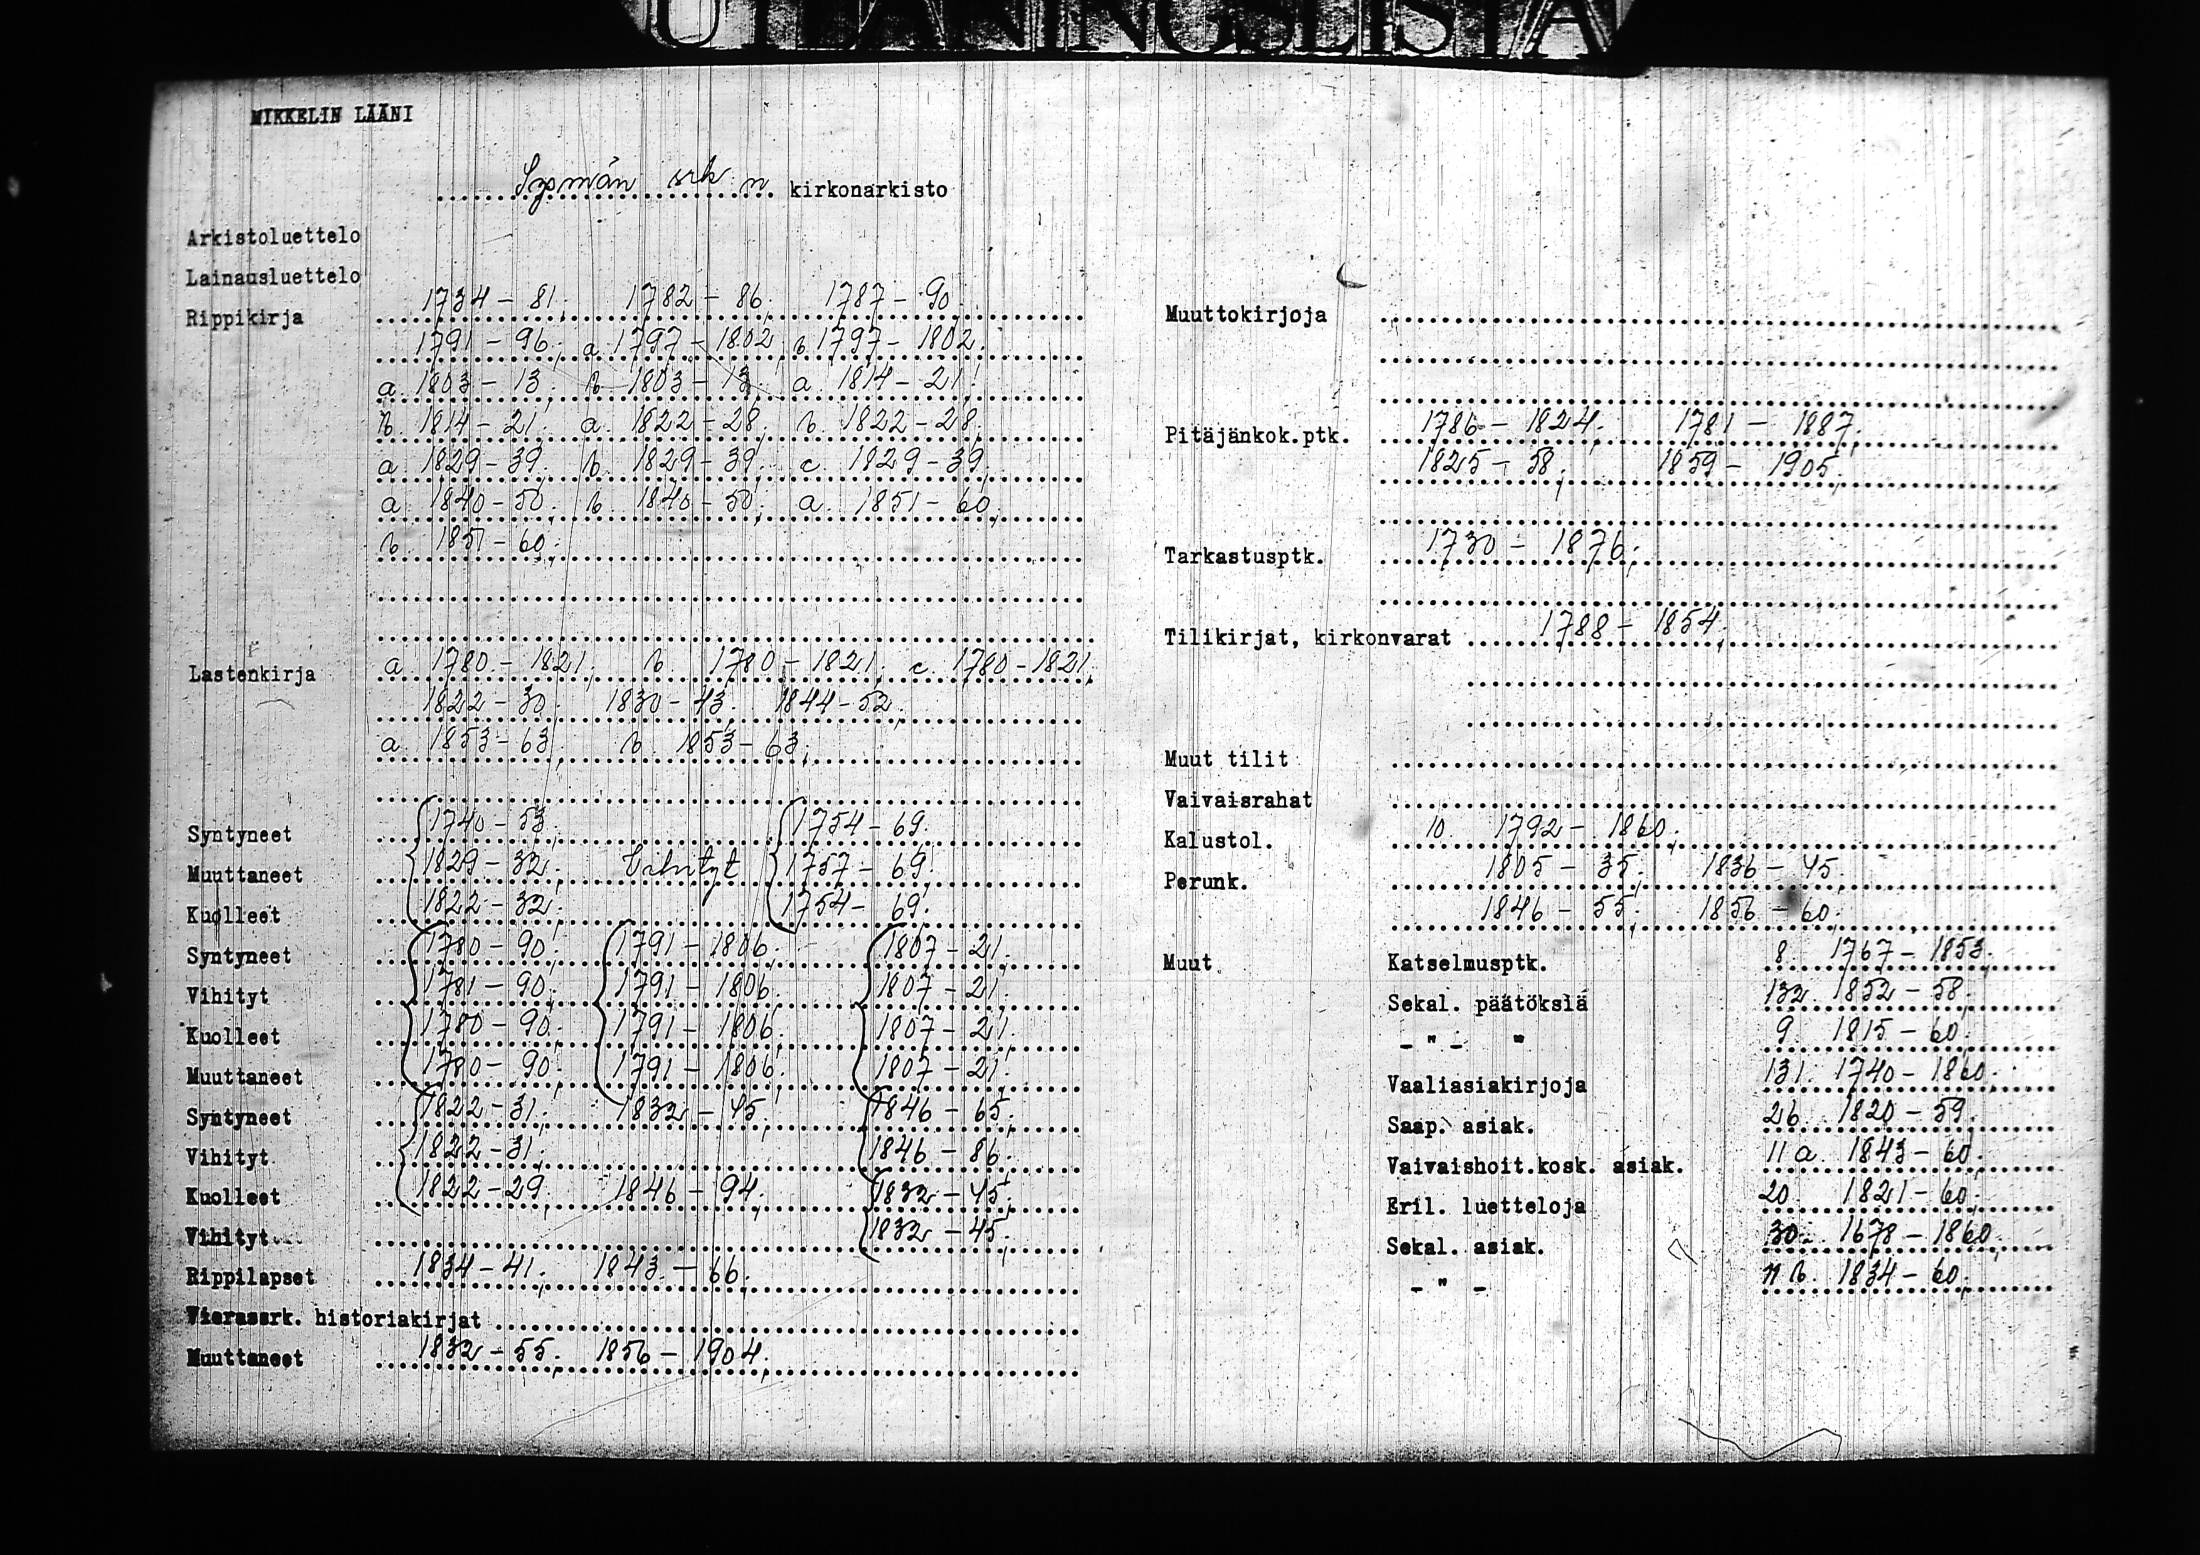 UTLÅNINGSLISTA
MIKKELIN LÄÄNI
Sysmän srk n kirkonarkisto
Arkistoluettelo
Lainausluettelo
Rippikirja 1734 - 81; 1782 - 86; 1787 - 90;
1791 - 96; a. 1797 - 1802; b. 1797 - 1802;
a. 1803 - 13; b. 1803 - 13; a. 1814 - 21;
b. 1814 - 21; a. 1822 - 28; b. 1822 - 28;
a. 1829 - 39; b. 1829 - 39; c. 1829 - 39;
a. 1840 - 50; b. 1840 - 50; a. 1851 - 60;
b. 1851 - 60;
Lastenkirja a. 1780 - 1821; b. 1780 - 1821; c. 1780 - 1821;
1822 - 30; 1830 - 43; 1844 - 52;
a. 1853 - 63; b. 1853 - 63;
Syntyneet 1740 - 53; 1754 - 69;
Muuttaneet 1829 - 32; Vihityt 1757 - 69;
Kuolleet 1822 - 32; 1754 - 69;
Syntyneet 1780 - 90; 1791 - 1806; 1807 - 21;
Vihityt 1781 - 90; 1791 - 1806; 1807 - 21;
Kuolleet 1780 - 90; 1791 - 1806; 1807 - 21;
Muuttaneet 1780 - 90; 1791 - 1806; 1807 - 21;
Syntyneet 1822 - 31; 1832 - 45; 1846 - 65;
Vihityt 1822 - 31; 1846 - 86;
Kuolleet 1822 - 29; 1846 - 94; 1832 - 45;
Vihityt 1832 - 45;
Rippilapset 1834 - 41; 1843 - 66;
Vierassrk. historiakirjat
Muuttaneet 1832 - 55; 1856 - 1904;
Muuttokirjoja
Pitäjänkok.ptk. 1786 - 1824; 1781 - 1887;
1825 - 58; 1859 - 1905;
Tarkastusptk. 1730 - 1876;
Tilikirjat, kirkonvarat 1788 - 1854;
Muut tilit
Vaivaisrahat
Kalustol. 10. 1792 - 1860;
Perunk. 1805 - 35; 1836 - 45;
1846 - 55; 1856 - 60;
Muut Katselmusptk. 8. 1767 - 1853;
Sekal. päätöksiä 132. 1852 - 58;
- " - " 9. 1815 - 60;
Vaaliasiakirjoja 131. 1740 - 1860;
Saap. asiak. 26. 1820 - 59;
Vaivaishoit.kosk. asiak. 11 a. 1843 - 60;
Eril. luetteloja 20. 1821 - 60;
Sekal. asiak. 30. 1678 - 1860;
- " - 11 b. 1834 - 60;